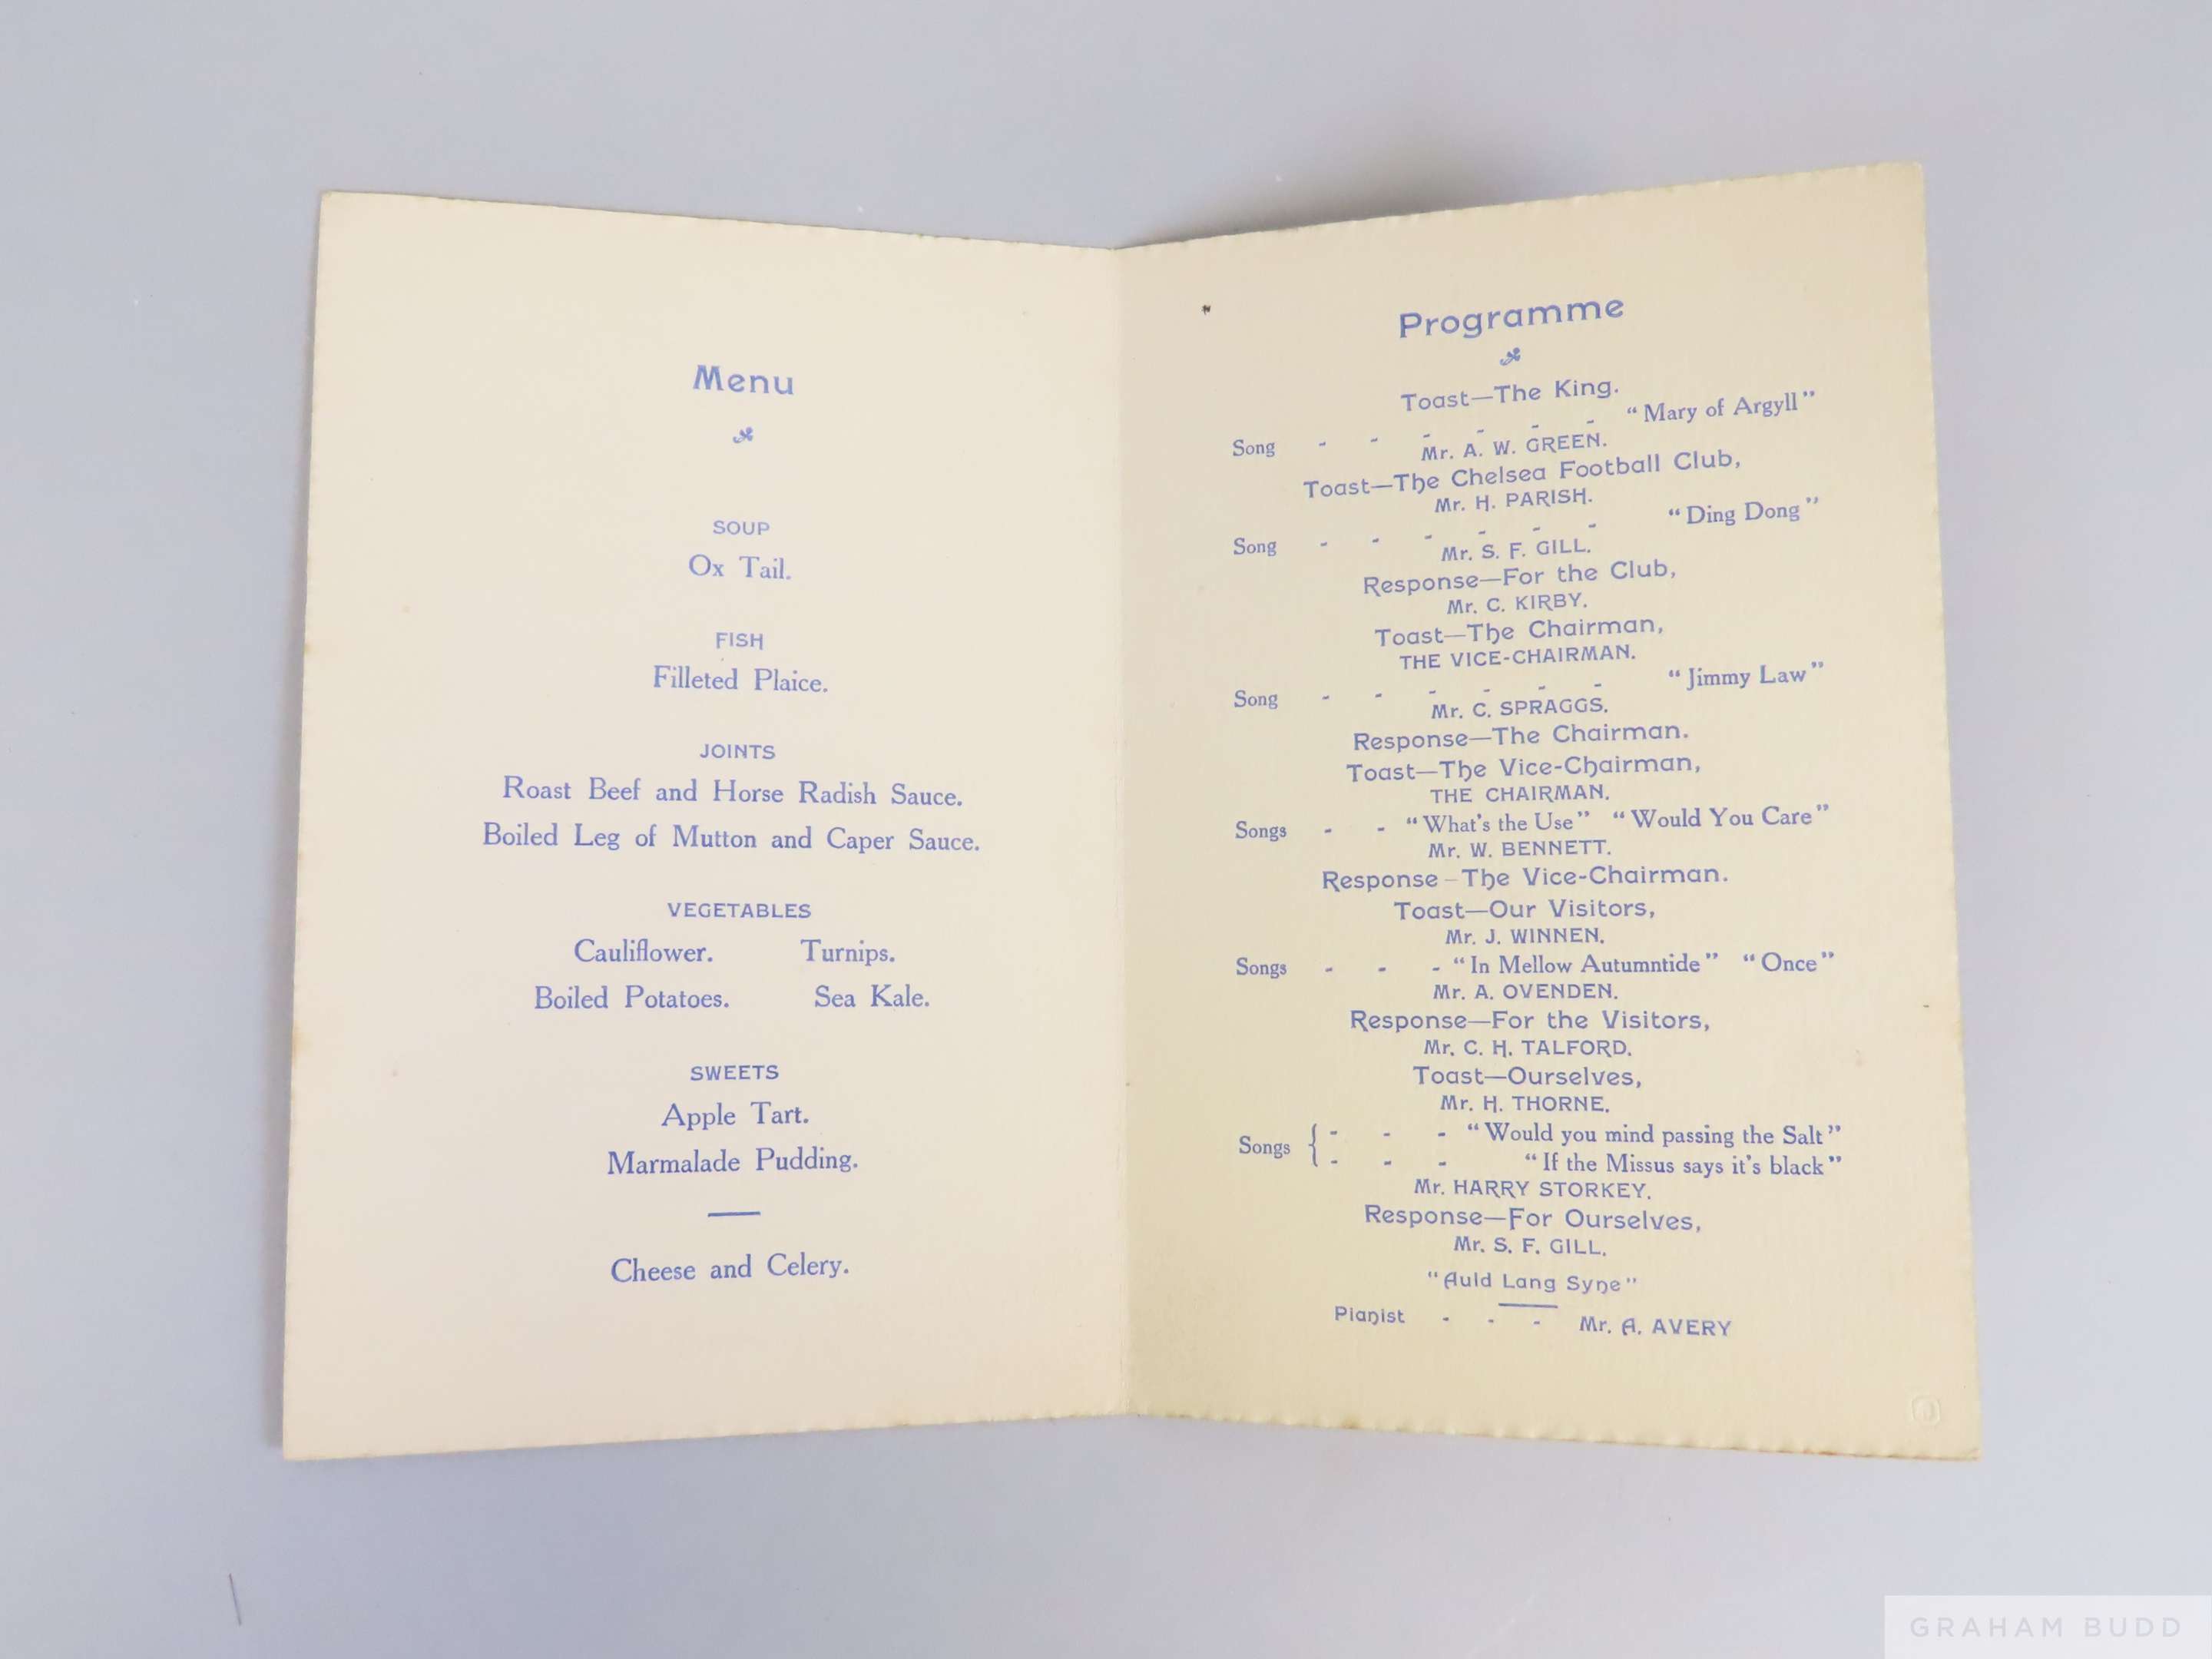 Menu
SOUP
Ox Tail.
FISH
Filleted Plaice.
JOINTS
Roast Beef and Horse Radish Sauce.
Boiled Leg of Mutton and Caper Sauce.
VEGETABLES
Cauliflower. Turnips.
Boiled Potatoes. Sea Kale.
SWEETS
Apple Tart.
Marmalade Pudding.
Cheese and Celery.
Programme
Toast—The King.
Song - - - - - - "Mary of Argyll"
Mr. A. W. GREEN.
Toast—The Chelsea Football Club,
Mr. H. PARISH.
Song - - - - - - "Ding Dong"
Mr. S. F. GILL.
Response—For the Club,
Mr. C. KIRBY.
Toast—The Chairman,
THE VICE-CHAIRMAN.
Song - - - - - - "Jimmy Law"
Mr. C. SPRAGGS.
Response—The Chairman.
Toast—The Vice-Chairman,
THE CHAIRMAN.
Songs - - "What's the Use" "Would You Care"
Mr. W. BENNETT.
Response–The Vice-Chairman.
Toast—Our Visitors,
Mr. J. WINNEN.
Songs - - - "In Mellow Autumntide" "Once"
Mr. A. OVENDEN.
Response—For the Visitors,
Mr. C. H. TALFORD.
Toast—Ourselves,
Mr. H. THORNE.
Songs { - - - "Would you mind passing the Salt"
- - - "If the Missus says it's black"
Mr. HARRY STORKEY.
Response—For Ourselves,
Mr. S. F. GILL.
"Auld Lang Syne"
Pianist - - - Mr. A. AVERY
GRAHAM BUDD